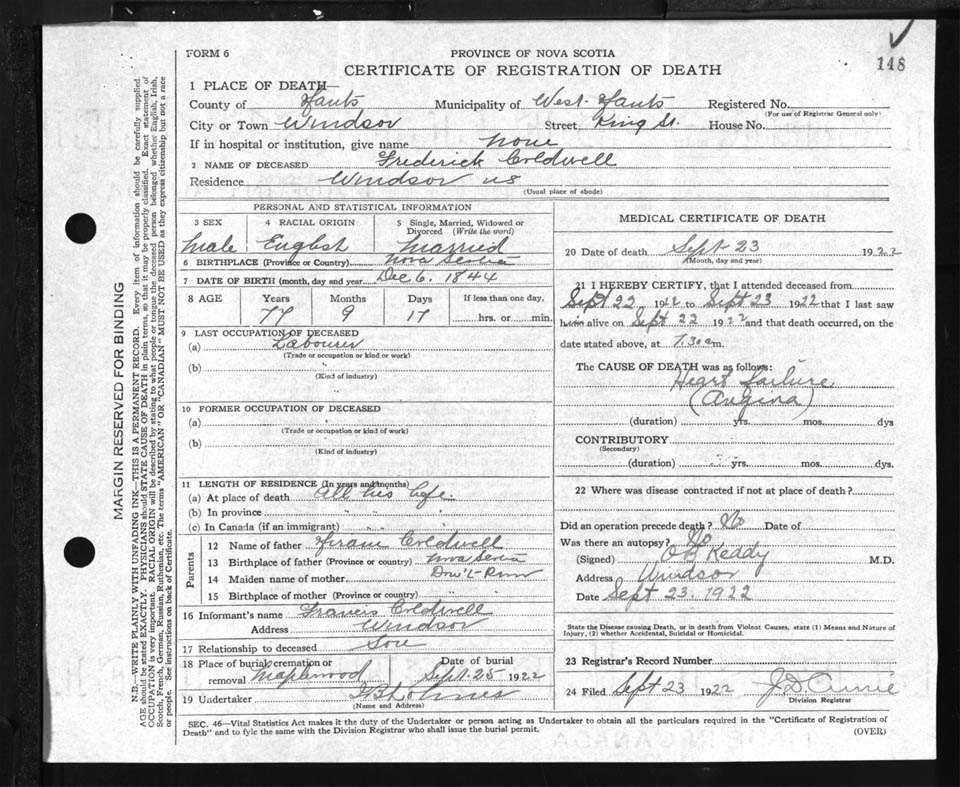 148
FORM 6
PROVINCE OF NOVA SCOTIA
CERTIFICATE OF REGISTRATION OF DEATH
1 PLACE OF DEATH—
County of Hants Municipality of West Hants Registered No.
(For use of Registrar General only)
City or Town Windsor Street King St. House No.
If in hospital or institution, give name none
2 NAME OF DECEASED Frederick Coldwell
Residence Windsor NS
(Usual place of abode)
PERSONAL AND STATISTICAL INFORMATION
3 SEX 4 RACIAL ORIGIN 5 Single, Married, Widowed or Divorced (Write the word)
Male English Married
6 BIRTHPLACE (Province or Country) Nova Scotia
7 DATE OF BIRTH (month, day and year) Dec 6. 1844
8 AGE Years Months Days If less than one day,
77 9 17 hrs. or min.
9 LAST OCCUPATION OF DECEASED
(a) Labourer
(Trade or occupation or kind or work)
(b) "
(Kind of industry)
10 FORMER OCCUPATION OF DECEASED
(a)
(Trade or occupation or kind of work)
(b)
(Kind of industry)
11 LENGTH OF RESIDENCE (In years and months)
(a) At place of death All his life.
(b) In province " "
(c) In Canada (if an immigrant) " "
Parents
12 Name of father Coldwell
13 Birthplace of father (Province or country) Nova Scotia
14 Maiden name of mother Don't Know
15 Birthplace of mother (Province or country)
16 Informant's name Francis Coldwell
Address Windsor
17 Relationship to deceased Son
18 Place of burial, cremation or removal Maplewood Date of burial Sept. 25 1922
19 Undertaker Holmes
(Name and Address)
MEDICAL CERTIFICATE OF DEATH
20 Date of death Sept 23 1922
(Month, day and year)
21 I HEREBY CERTIFY, that I attended deceased from
Sept 22 1922 to Sept 23 1922 that I last saw
him alive on Sept 22 1922 and that death occurred, on the
date stated above, at 7.30 a m.
The CAUSE OF DEATH was as follows:
Heart failure
(Angina)
(duration) yrs. mos. dys
CONTRIBUTORY
(Secondary)
(duration) yrs. mos. dys.
22 Where was disease contracted if not at place of death?
Did an operation precede death? No Date of
Was there an autopsy? No
(Signed) Keddy M.D.
Address Windsor
Date Sept 23. 1922
State the Disease causing Death, or in death from Violent Causes, state (1) Means and Nature of
Injury, (2) whether Accidental, Suicidal or Homicidal.
23 Registrar's Record Number
24 Filed Sept 23 1922
Division Registrar
SEC. 46—Vital Statistics Act makes it the duty of the Undertaker or person acting as Undertaker to obtain all the particulars required in the "Certificate of Registration of
Death" and to fyle the same with the Division Registrar who shall issue the burial permit. (OVER)
MARGIN RESERVED FOR BINDING
N.B.—WRITE PLAINLY, WITH UNFADING INK—THIS IS A PERMANENT RECORD. Every item of information should be carefully supplied.
AGE should be stated EXACTLY. PHYSICIANS should STATE CAUSE OF DEATH in plain terms, so that it may be properly classified. Exact statement of
OCCUPATION is very important. RACIAL ORIGIN will be described by stating to what people or tongue the deceased person belonged whether English, Irish,
Scotch, French, German, Russian, Ruthenian, etc. The terms "AMERICAN" OR "CANADIAN" MUST NOT BE USED as they express citizenship but not a race
or people. See instructions on back of Certificate.